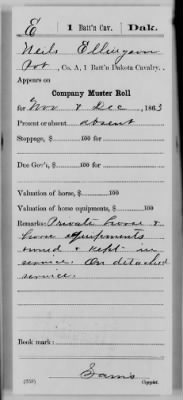 E 1 Batt'n Cav. Dak.
Neils Ellingson
Pvt, Co. A, 1 Batt'n Dakota Cavalry.
Appears on
Company Muster Roll
for Nov & Dec, 1863
Present or absent absent
Stoppage, $ 100 for
Due Gov't, $ 100 for
Valuation of horse, $ 100
Valuation of horse equipments, $ 100
Remarks: Private horse &
horse equipments
owned & kept in
service. On detached
service.
Book mark:
Sams
(358) Copyist.